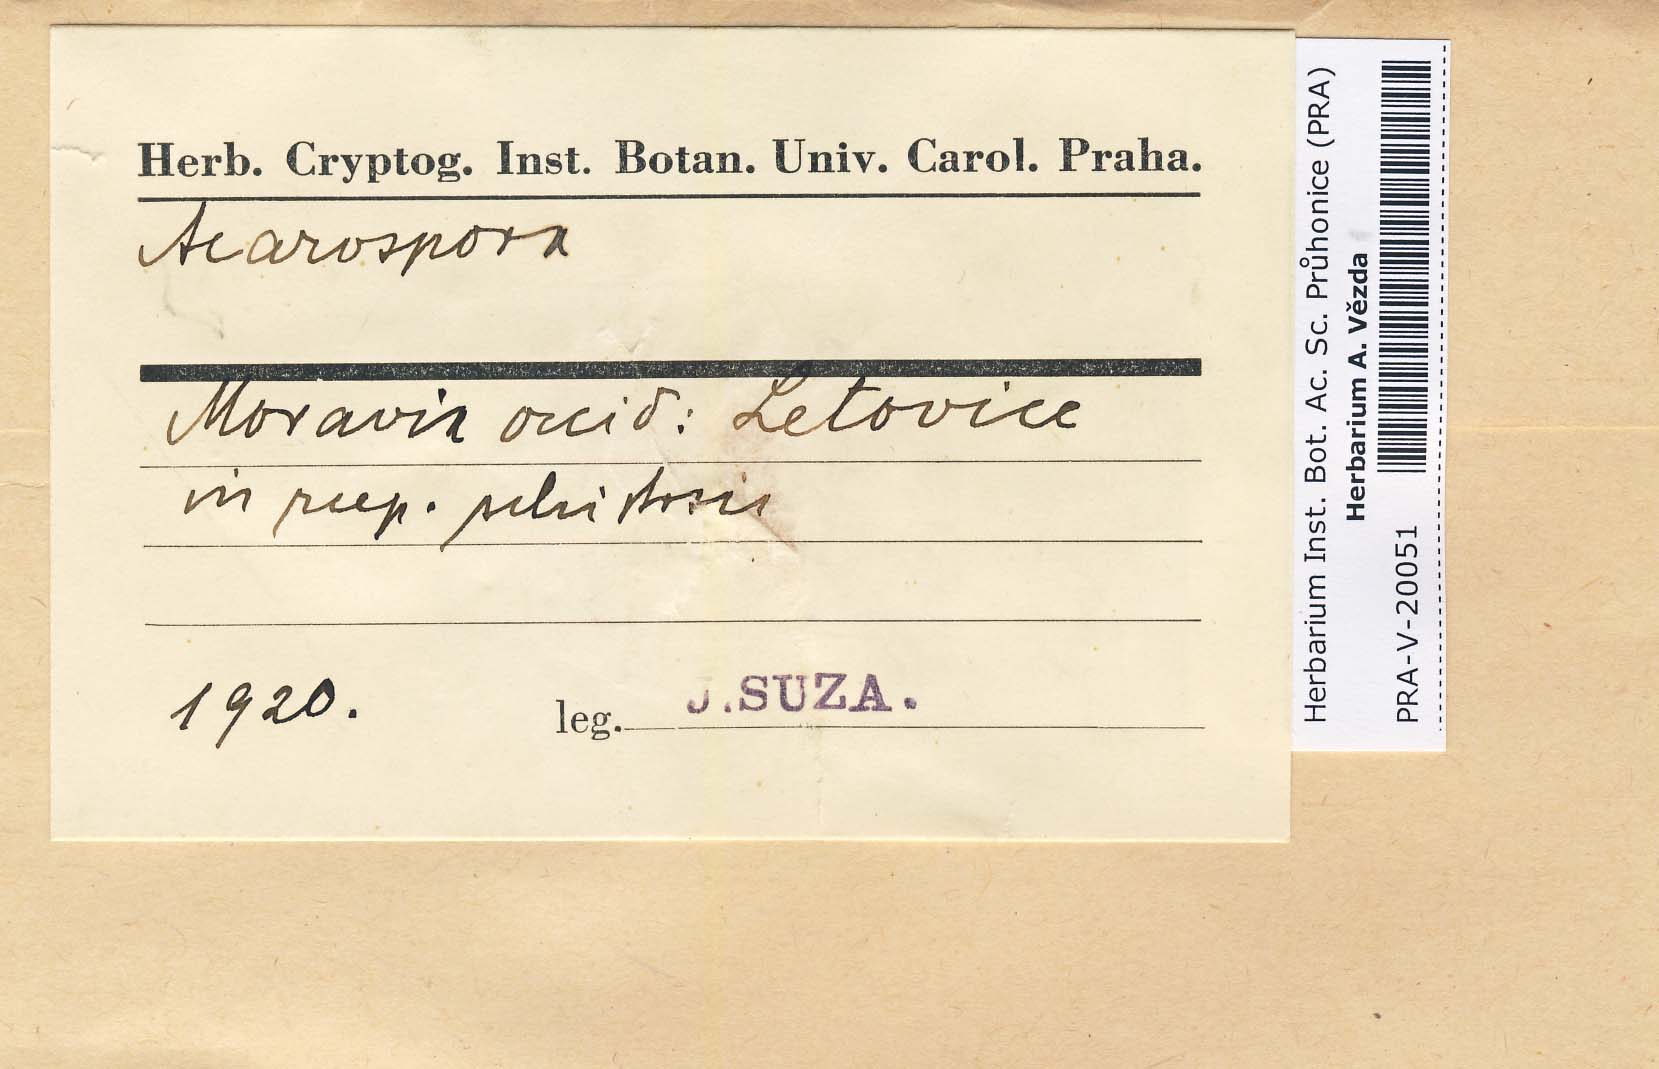 Herb. Cryptog. Inst. Botan. Univ. Carol. Praha.
Acarospora
Moravia occid: Letovice
in rup. schistosis
1920.
leg. J. SUZA.
Herbarium Inst. Bot. Ac. Sc. Průhonice (PRA)
Herbarium A. Vězda
PRA-V-20051